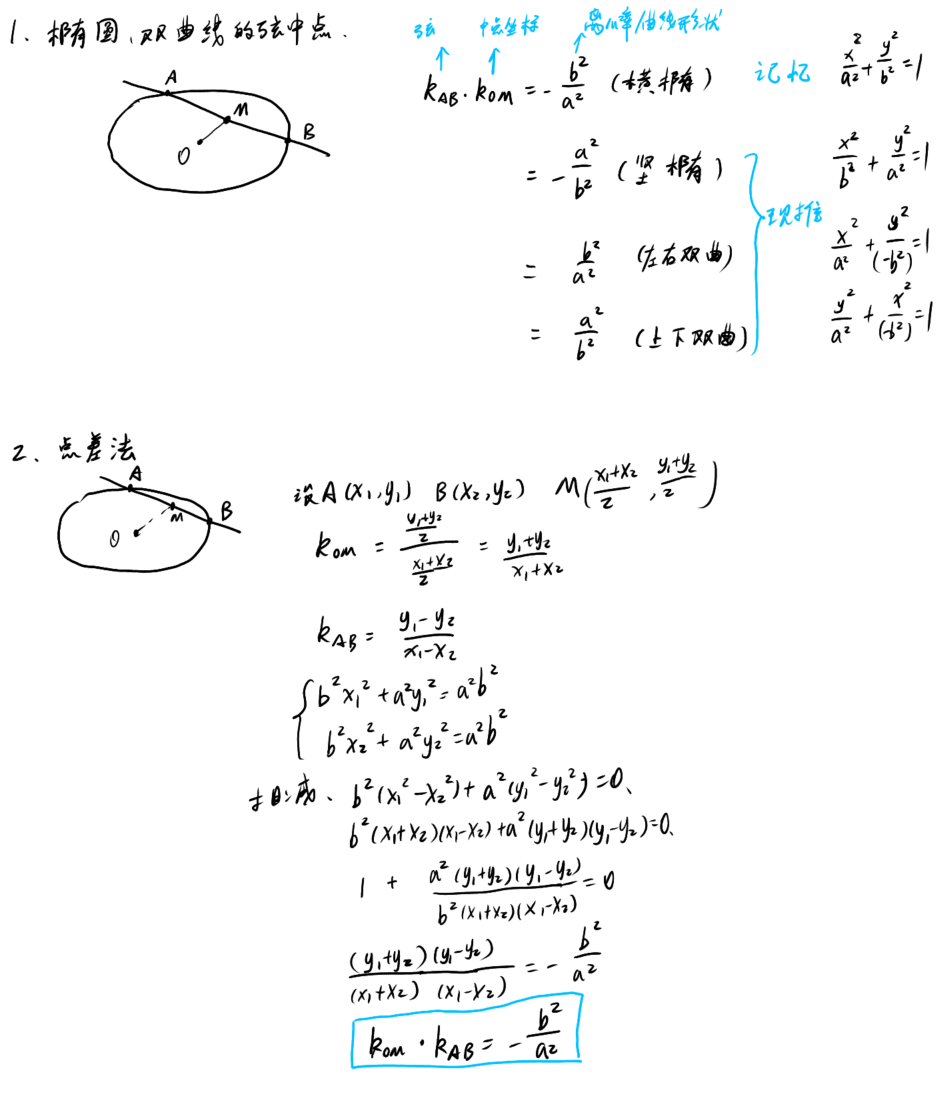 1、椭圆、双曲线的弦中点.
弦 中点坐标 离心率/曲线形状
A M B O
k_{AB}·k_{OM} = -\frac{b^2}{a^2} (横椭圆) 记忆 \frac{x^2}{a^2}+\frac{y^2}{b^2}=1
= -\frac{a^2}{b^2} (竖椭圆) \frac{x^2}{b^2}+\frac{y^2}{a^2}=1
现推
= \frac{b^2}{a^2} (左右双曲) \frac{x^2}{a^2}+\frac{y^2}{(-b^2)}=1
= \frac{a^2}{b^2} (上下双曲) \frac{y^2}{a^2}+\frac{x^2}{(-b^2)}=1
2、点差法
A M B O
设A(x_1,y_1) B(x_2,y_2) M(\frac{x_1+x_2}{2},\frac{y_1+y_2}{2})
k_{OM} = \frac{\frac{y_1+y_2}{2}}{\frac{x_1+x_2}{2}} = \frac{y_1+y_2}{x_1+x_2}
k_{AB} = \frac{y_1-y_2}{x_1-x_2}
{ b^2x_1^2+a^2y_1^2=a^2b^2
b^2x_2^2+a^2y_2^2=a^2b^2
相减、b^2(x_1^2-x_2^2)+a^2(y_1^2-y_2^2)=0、
b^2(x_1+x_2)(x_1-x_2)+a^2(y_1+y_2)(y_1-y_2)=0、
1 + \frac{a^2(y_1+y_2)(y_1-y_2)}{b^2(x_1+x_2)(x_1-x_2)} = 0
\frac{(y_1+y_2)(y_1-y_2)}{(x_1+x_2)(x_1-x_2)} = -\frac{b^2}{a^2}
k_{OM}·k_{AB} = -\frac{b^2}{a^2}